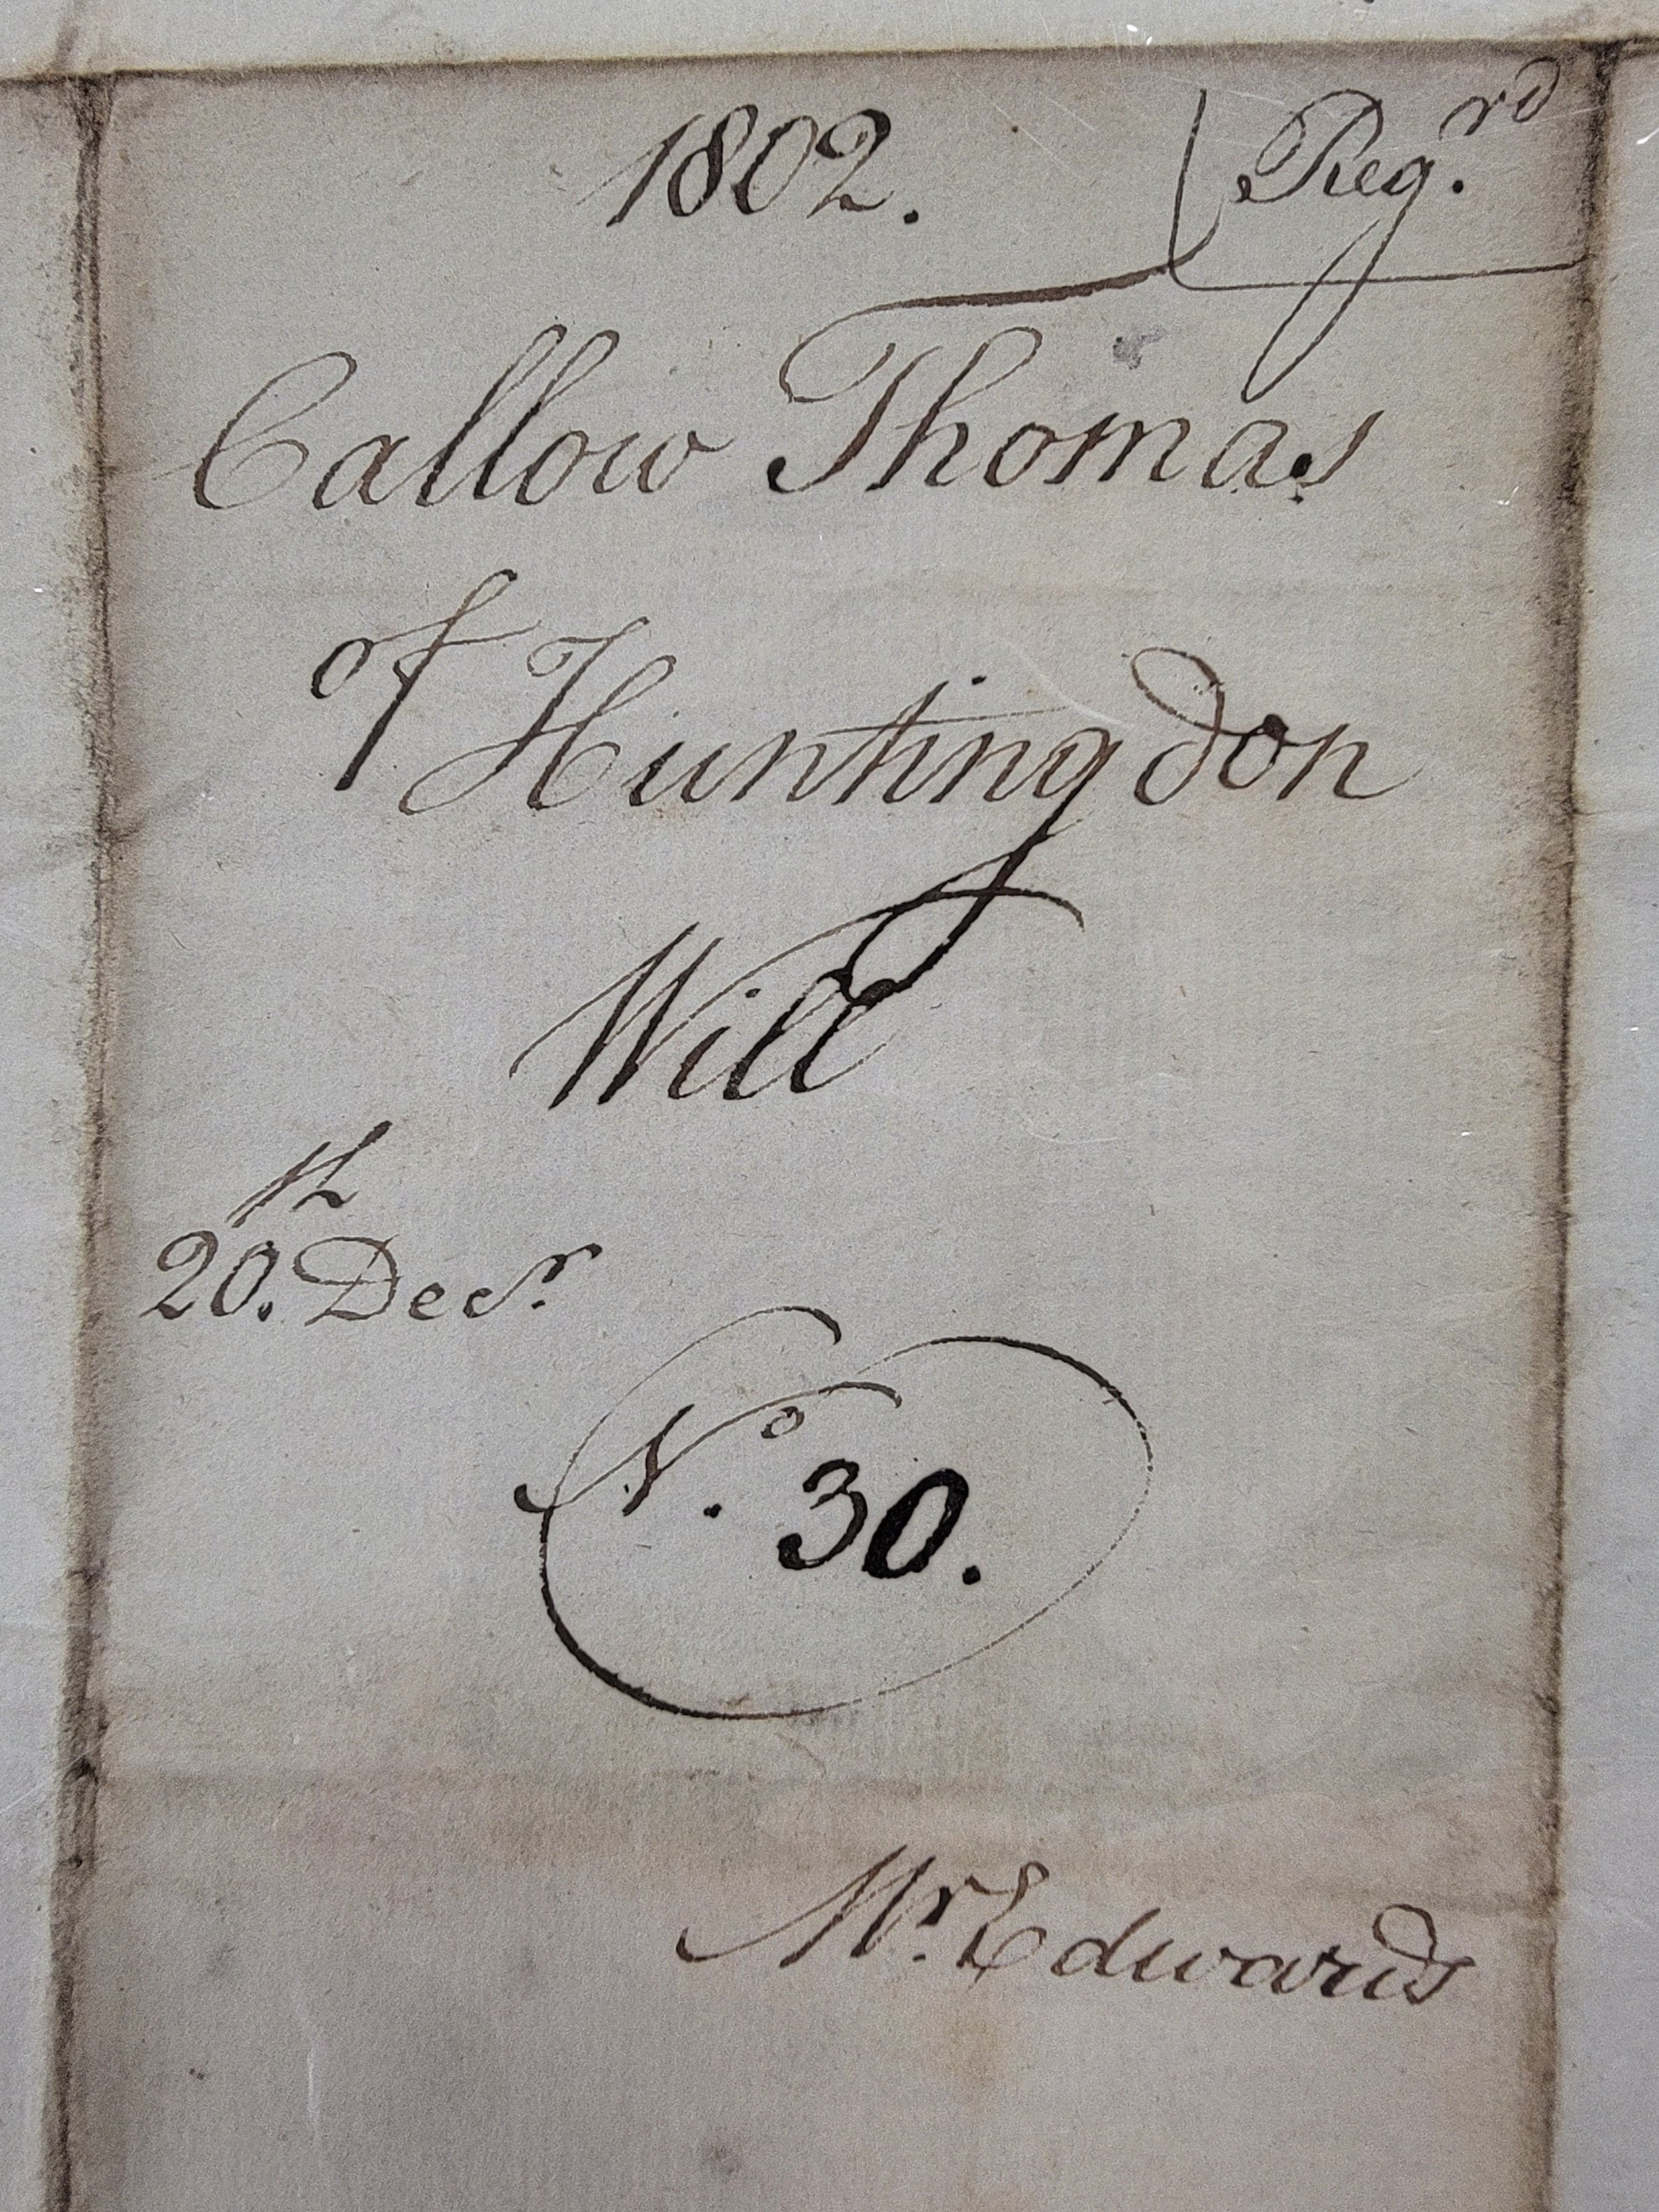 1802. Reg.rd
Callow Thomas
of Huntingdon
Will
20.th Decr.
No. 30.
Mr. Edwards